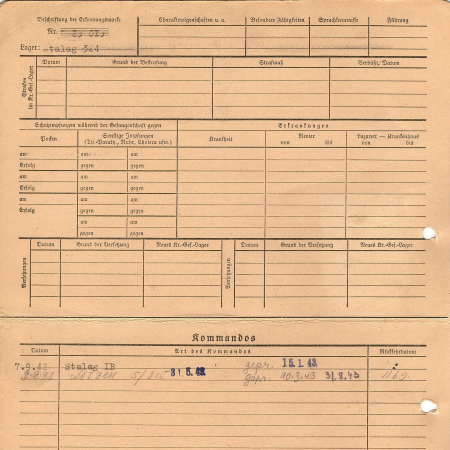 Beschriftung der Erkennungsmarke
Charaktereigenschaften u. a.
Besondere Fähigkeiten
Sprachkenntnisse
Führung
Nr.
Lager: Stalag 324
Strafen im Kr.-Gef.-Lager
Datum
Grund der Bestrafung
Strafmaß
Verbüßt, Datum
Schutzimpfungen während der Gefangenschaft gegen
Erkrankungen
Pocken
Sonstige Impfungen
(Ty.-Paraty., Ruhr, Cholera usw.)
Krankheit
Revier
von bis
Lazarett — Krankenhaus
von bis
am am am
Erfolg gegen gegen
am am am
Erfolg gegen gegen
am am am
Erfolg gegen gegen
am am
gegen gegen
Versetzungen
Datum
Grund der Versetzung
Neues Kr.-Gef.-Lager
Versetzungen
Datum
Grund der Versetzung
Neues Kr.-Gef.-Lager
Kommandos
Datum
Art des Kommandos
Rückkehrdatum
Stalag IB 15.1.43
31.8.43